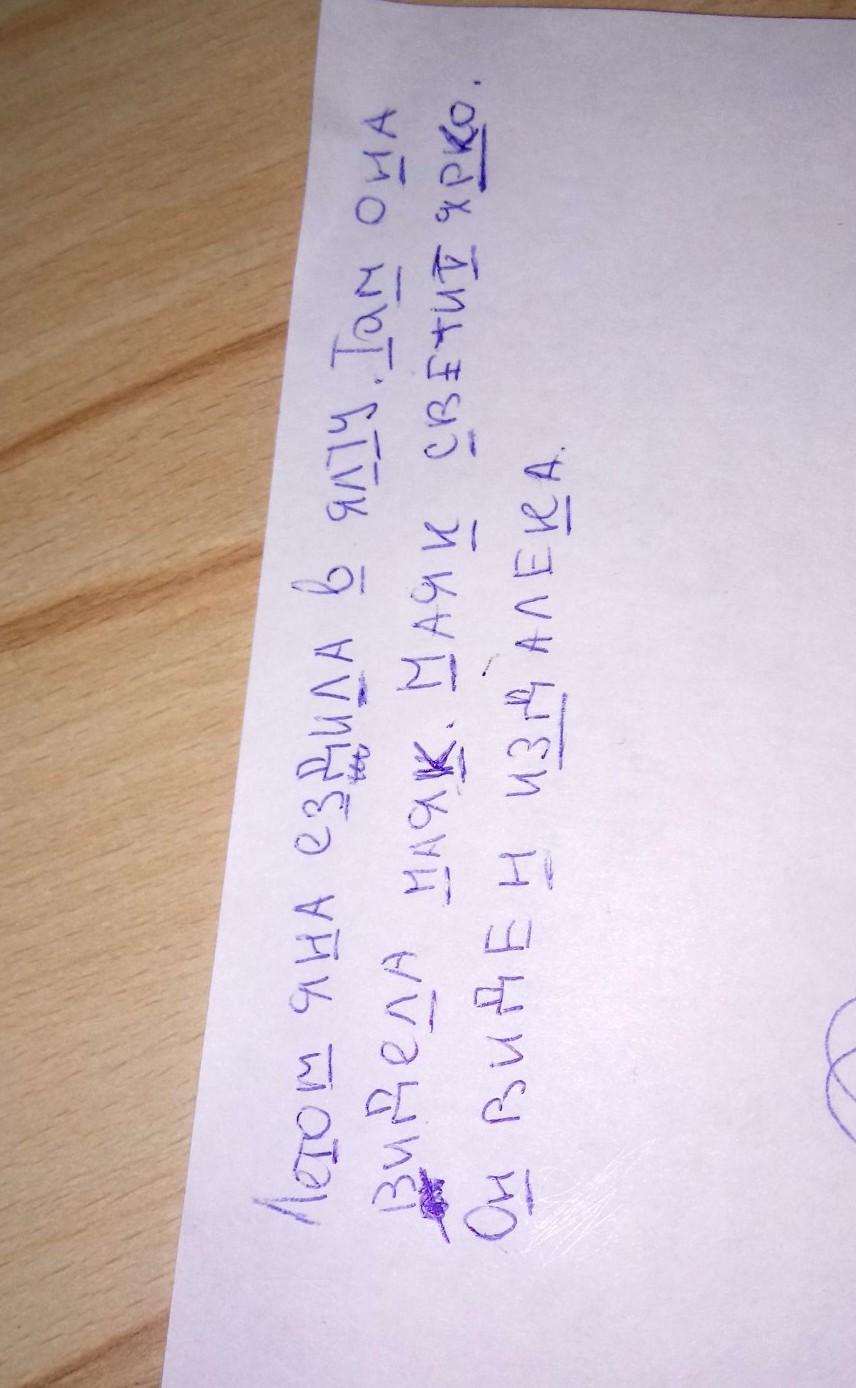 Летом яна ездила в ялту. Там она
видела маяк. Маяк светит ярко.
Он виден издалека.